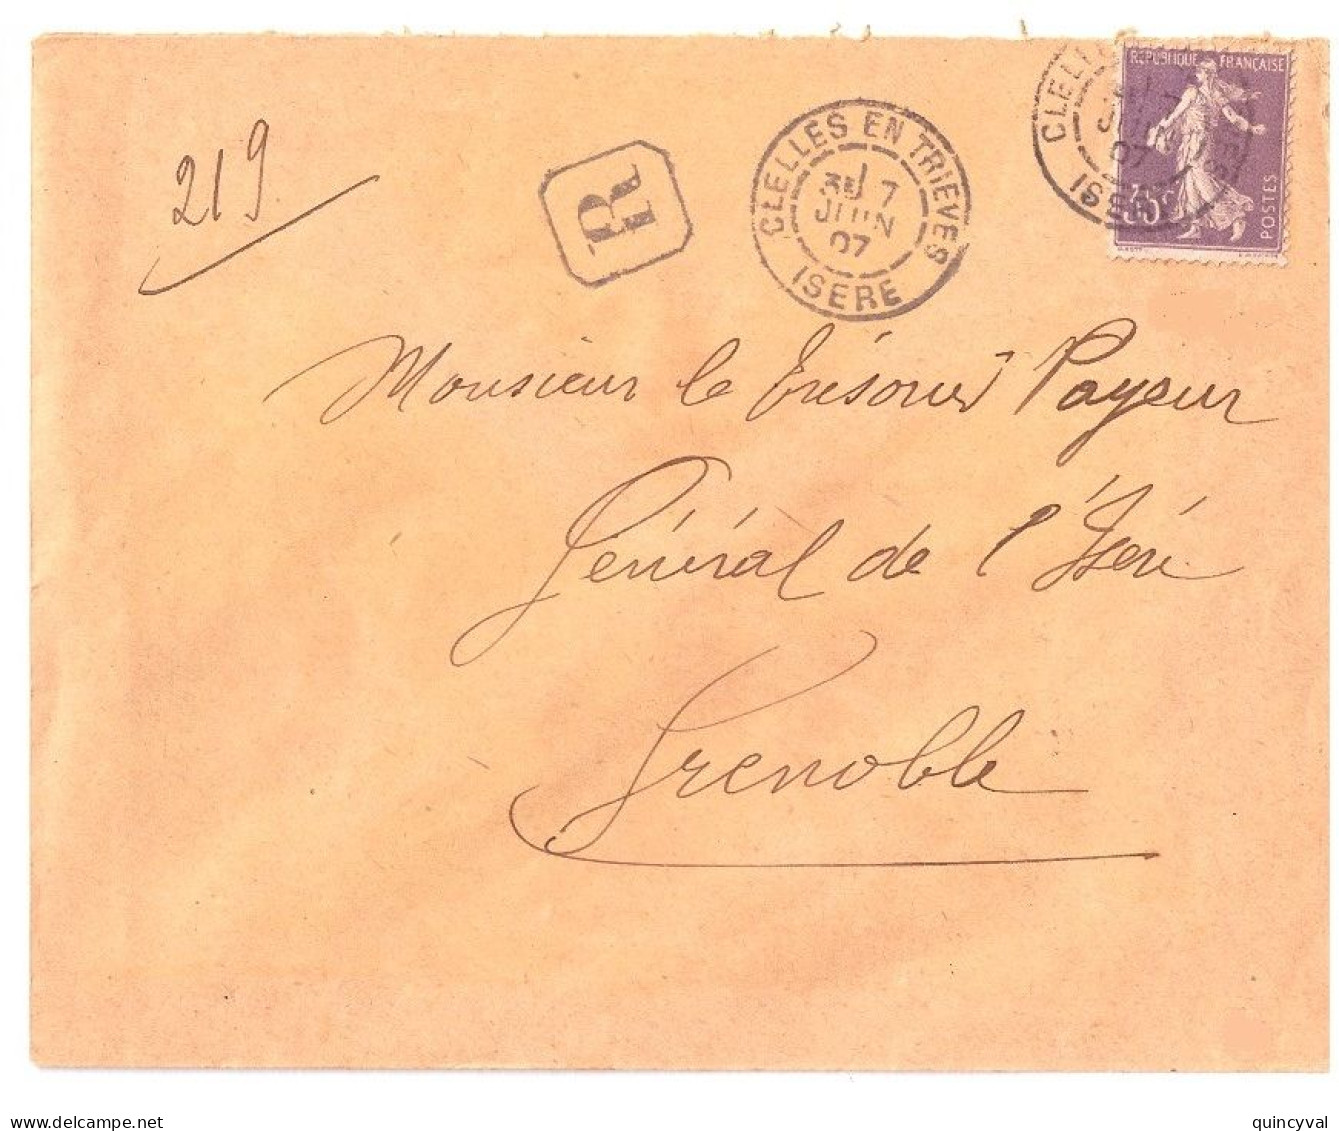 219
R
CLELLES EN TRIEVES
7
JUIN
07
ISERE
CLELL
JUIN
07
ISERE
REPUBLIQUE FRANÇAISE
35c
POSTES
Monsieur le Trésorier Payeur
Général de l'Isère
Grenoble
www.delcampe.net
quincyval